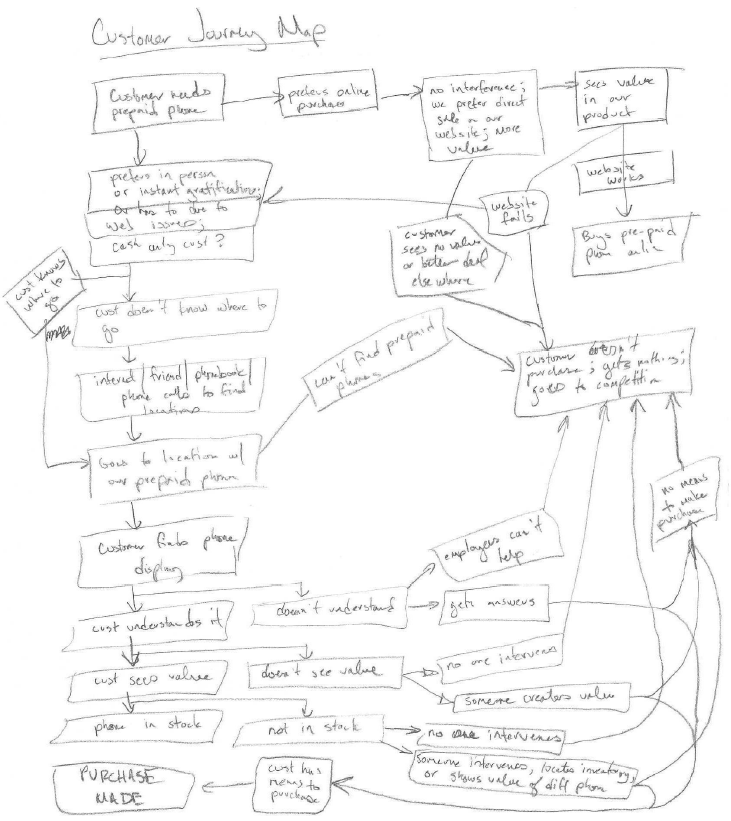 Customer Journey Map
Customer needs
prepaid phone
prefers online
purchase
no interference;
we prefer direct
sale on our
website; more
value
sees value
in our
product
prefers in person
or instant gratification;
or has to due to
web issues;
cash only cust?
website
fails
website
works
Buys pre-paid
phone online
customer
sees no value
or better deal
else where
cust knows
where to
go
cust doesn't know where to
go
interet / friend / phonebook /
phone calls to find
locations
can't find prepaid
phones
customer doesn't
purchase; gets nothing;
goes to competition
Goes to location w/
our prepaid phone
no means
to make
purchase
Customer finds phone
display
employees can't
help
cust understands it
doesn't understand
gets answers
cust sees value
doesn't see value
no one intervenes
someone creates value
phone in stock
not in stock
no one intervenes
someone intervenes, locates inventory,
or shows value of diff phone
cust has
means to
purchase
PURCHASE
MADE